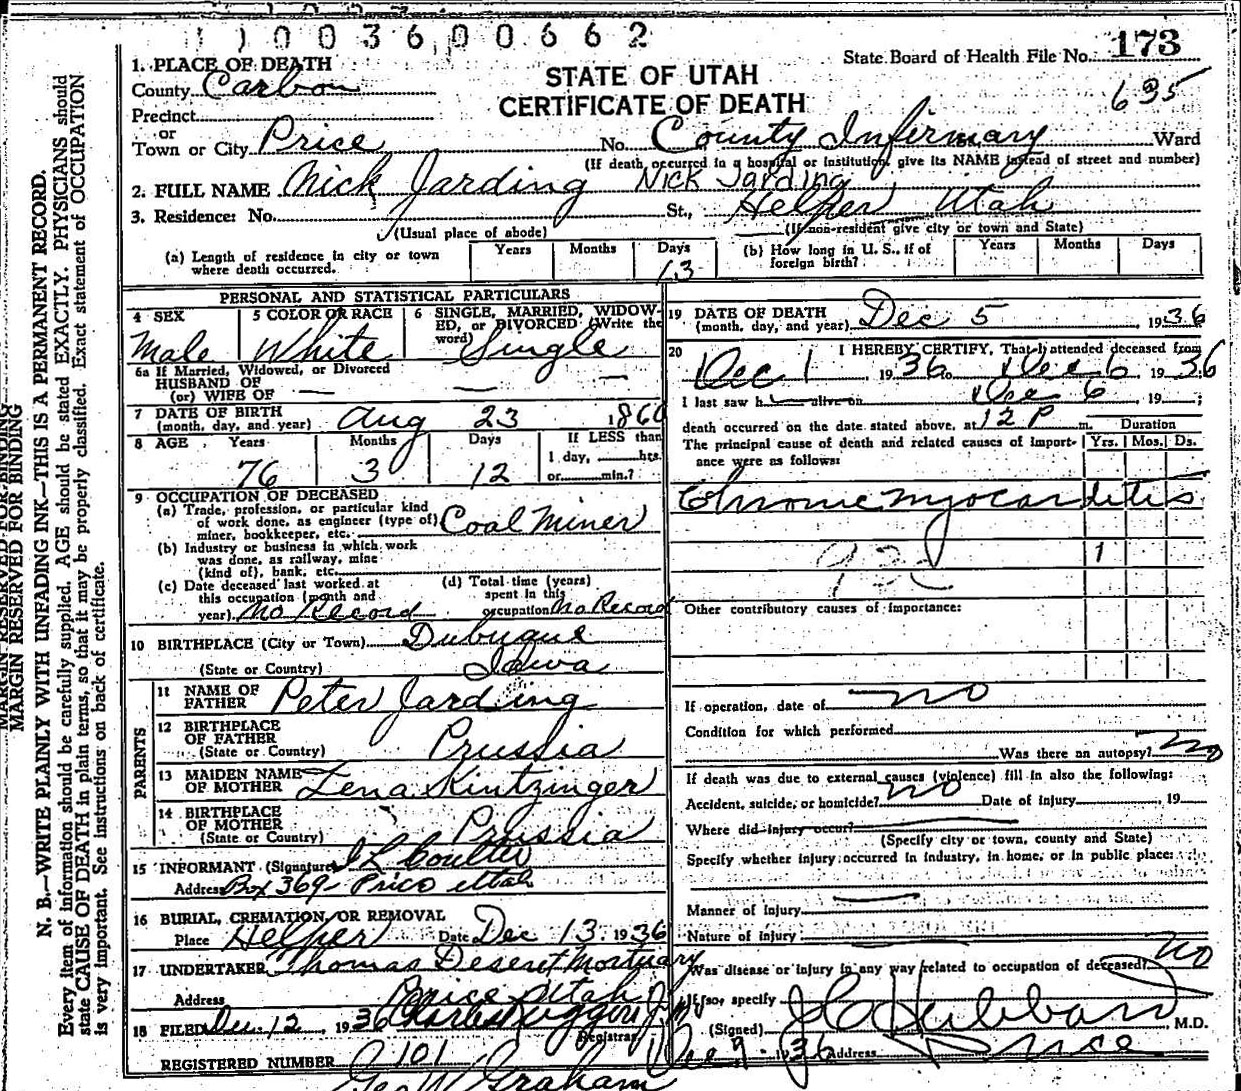 11003600662
State Board of Health File No. 173
635
STATE OF UTAH
CERTIFICATE OF DEATH
1. PLACE OF DEATH
County Carbon
Precinct
or
Town or City Price No. County Infirmary Ward
(If death occurred in a hospital or institution, give its NAME instead of street and number)
2. FULL NAME Nick Jarding Nick Jarding
3. Residence: No. St., Helper Utah
(Usual place of abode) (If non-resident give city or town and State)
(a) Length of residence in city or town where death occurred. Years Months Days 13
(b) How long in U. S., if of foreign birth? Years Months Days
PERSONAL AND STATISTICAL PARTICULARS
4 SEX Male
5 COLOR OR RACE White
6 SINGLE, MARRIED, WIDOWED, or DIVORCED (Write the word) Single
6a If Married, Widowed, or Divorced
HUSBAND OF
(or) WIFE OF
7 DATE OF BIRTH
(month, day, and year) Aug 23 1860
8 AGE Years 76 Months 3 Days 12 If LESS than
1 day, hrs.
or min.?
9 OCCUPATION OF DECEASED
(a) Trade, profession, or particular kind
of work done, as engineer (type of)
miner, bookkeeper, etc. Coal Miner
(b) Industry or business in which work
was done, as railway, mine
(kind of), bank, etc.
(c) Date deceased last worked at
this occupation (month and
year) No Record
(d) Total time (years)
spent in this
occupation No Record
10 BIRTHPLACE (City or Town) Dubuque
(State or Country) Iowa
PARENTS
11 NAME OF
FATHER Peter Jarding
12 BIRTHPLACE
OF FATHER
(State or Country) Prussia
13 MAIDEN NAME
OF MOTHER Lena Kintzinger
14 BIRTHPLACE
OF MOTHER
(State or Country) Prussia
15 INFORMANT (Signature) Coulter
Address Box 369 - Price Utah
16 BURIAL, CREMATION, OR REMOVAL
Place Helper Date Dec 13, 1936
17 UNDERTAKER Thomas Deseret Mortuary
Address Price Utah
18 FILED Dec. 12, 1936 Charles Ruggeri Jr.
Registrar
REGISTERED NUMBER 101
Geo W Graham
19 DATE OF DEATH
(month, day, and year) Dec 5, 1936
20 I HEREBY CERTIFY, That I attended deceased from
Dec 1 1936 to Dec 6 1936
I last saw h alive on Dec 6, 19 ;
death occurred on the date stated above, at 12 P m.
The principal cause of death and related causes of importance were as follows:
Duration
Yrs. Mos. Ds.
Chronic myocarditis
1
Other contributory causes of importance:
If operation, date of no
Condition for which performed
Was there an autopsy? no
If death was due to external causes (violence) fill in also the following:
Accident, suicide, or homicide? no Date of injury , 19
Where did injury occur?
(Specify city or town, county and State)
Specify whether injury occurred in industry, in home, or in public place:
Manner of injury
Nature of injury
Was disease or injury in any way related to occupation of deceased? no
If so, specify
(Signed) J C Hubbard, M.D.
Dec 9 - 1936 Address Price
MARGIN RESERVED FOR BINDING
MARGIN RESERVED FOR BINDING
N. B.—WRITE PLAINLY WITH UNFADING INK—THIS IS A PERMANENT RECORD.
Every item of information should be carefully supplied. AGE should be stated EXACTLY. PHYSICIANS should
state CAUSE OF DEATH in plain terms, so that it may be properly classified. Exact statement of OCCUPATION
is very important. See instructions on back of certificate.